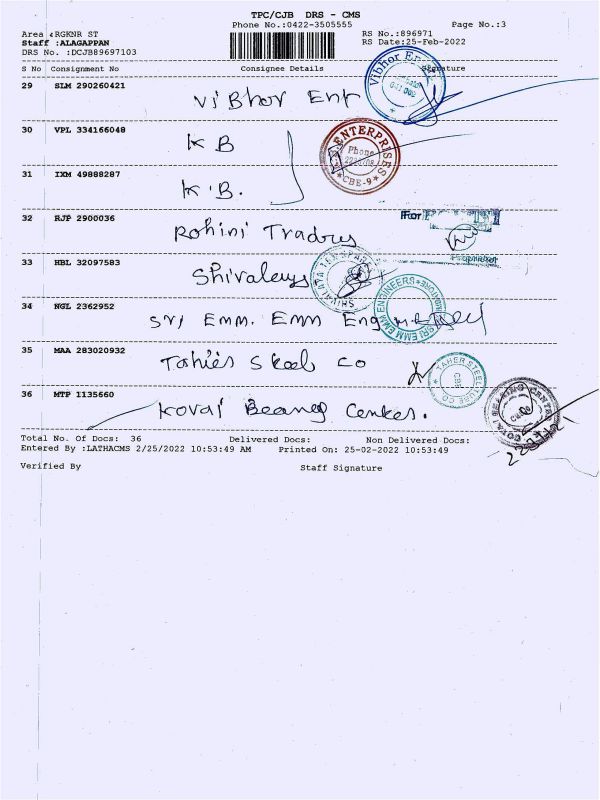 TPC/CJB DRS - CMS
Phone No.:0422-3505555 Page No.:3
Area :RGKNR ST RS No.:896971
Staff :ALAGAPPAN RS Date:25-Feb-2022
DRS No. :DCJB89697103
S No Consignment No Consignee Details Signature
29 SLM 290260421
Vibhor Ent
Vibhor Ent
30 VPL 334166048
K B
ENTERPRISES
Phone
CBE-9
31 IXM 49888287
K.B.
32 RJP 2900036
For
Rohini Traders
33 HBL 32097583
34 NGL 2362952
Sri Emm. Emm Eng
SRI EMM EMM ENGINEERS
35 MAA 283020932
Co
TAHER STEEL TUBE CO
CBE
36 MTP 1135660
Kovai Bearing Center.
KOVAI BEARING CENTRE
Total No. Of Docs: 36 Delivered Docs: Non Delivered Docs:
Entered By :LATHACMS 2/25/2022 10:53:49 AM Printed On: 25-02-2022 10:53:49
Verified By Staff Signature